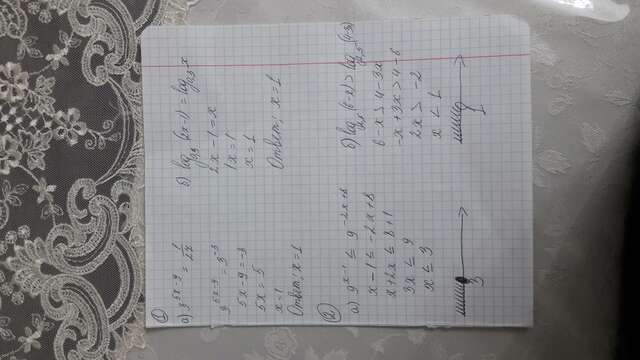 ①
а) 3^{5x-9} = 1/27
3^{5x-9} = 3^{-3}
5x-9=-3
5x=5
x=1
Ответ: x=1
б) log_{0,3}(2x-1) = log_{0,3} x
2x-1=x
1x=1
x=1
Ответ: x=1
②
а) 9^{x-1} ≤ 9^{-2x+8}
x-1 ≤ -2x+8
x+2x ≤ 8+1
3x ≤ 9
x ≤ 3
3
б) log_{0,5}(6-x) > log_{0,5}(4-3x)
6-x > 4-3x
-x+3x > 4-6
2x > -2
x < 1
1